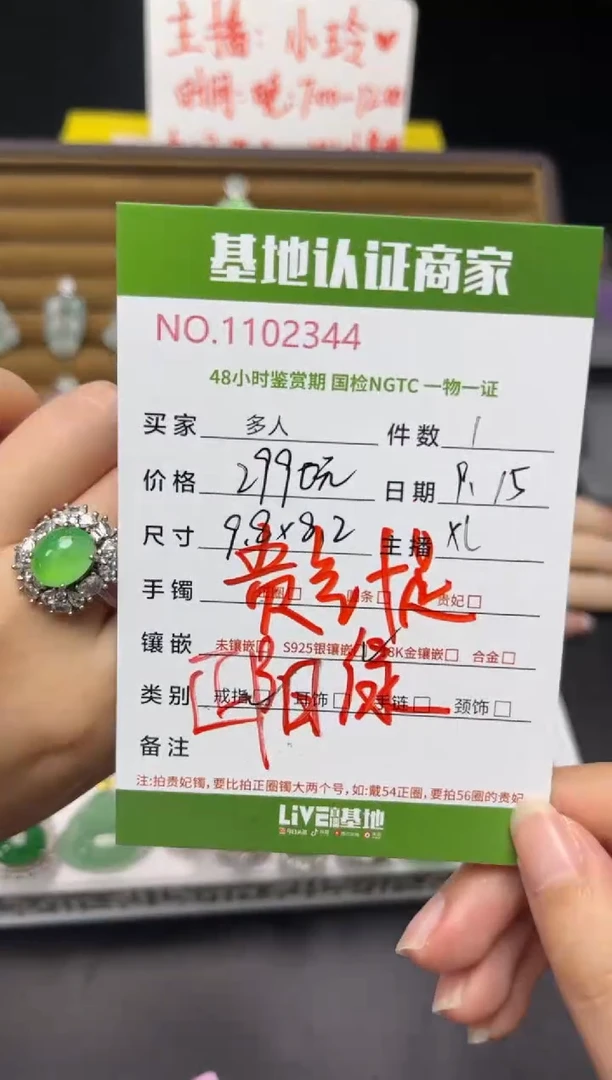 主播：小玲♥
时间：晚：7:00-12:00
基地认证商家
NO.1102344
48小时鉴赏期 国检NGTC 一物一证
买家 多人 件数 1
价格 2990元 日期 9.15
尺寸 9.8×8.2 主播 XL
手镯 正圈□ 圆条□ 贵妃□
贵气十足
镶嵌 未镶嵌□ S925银镶嵌 18K金镶嵌□ 合金□
阳绿
类别 戒指 耳饰□ 手链□ 颈饰□
备注
注:拍贵妃镯,要比拍正圈镯大两个号,如:戴54正圈,要拍56圈的贵妃
LiVE 基地